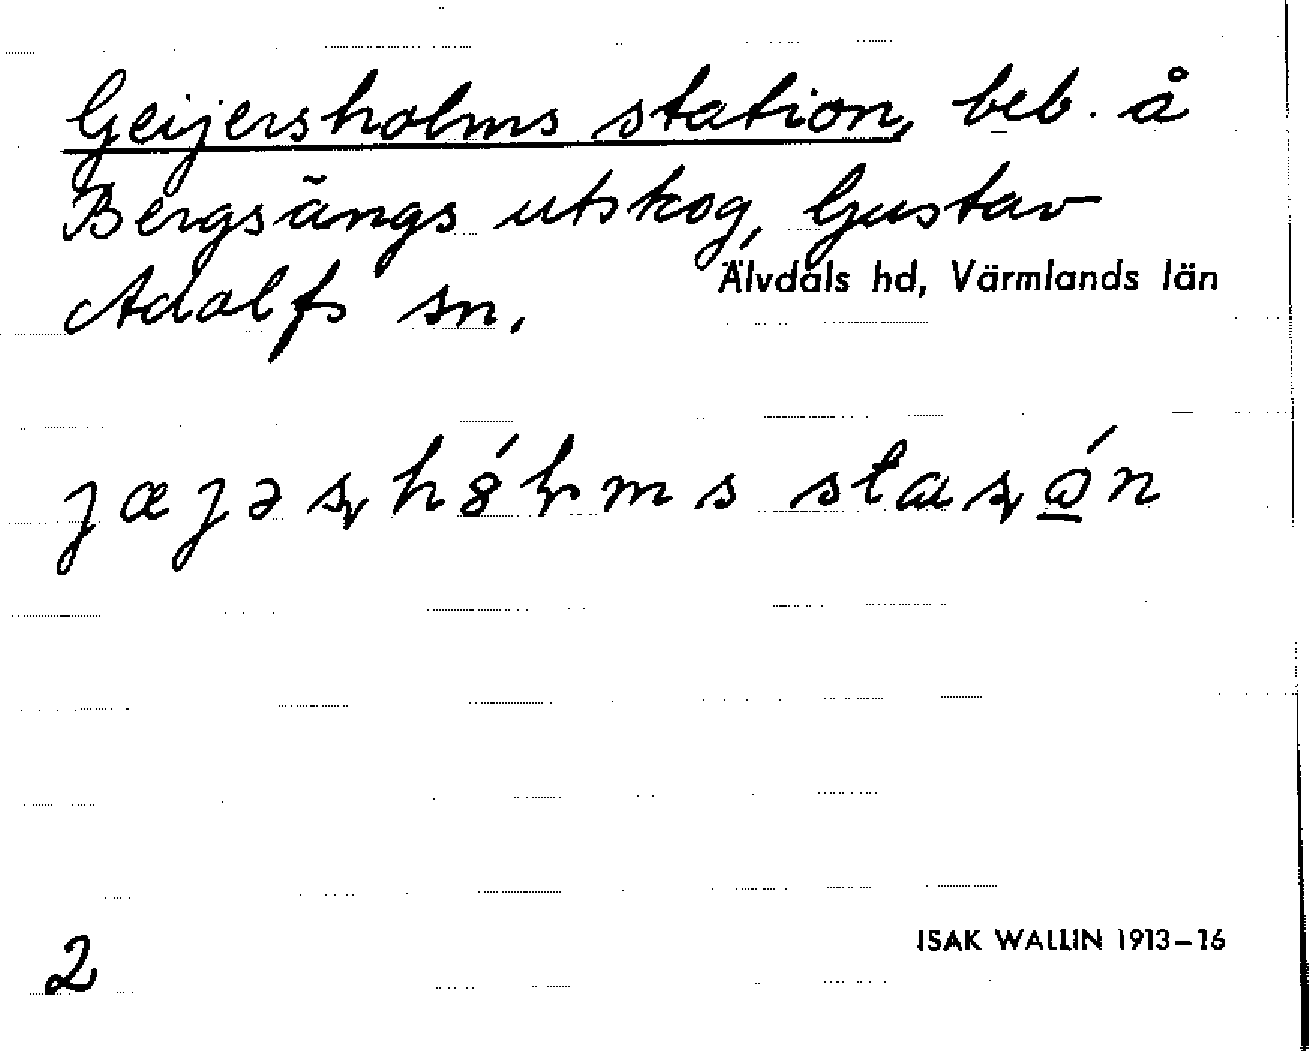 Geijersholms station, beb. å
Bergsängs utskog, Gustav
Älvdals hd, Värmlands län
Adolfs sn.
2
ISAK WALLIN 1913–16